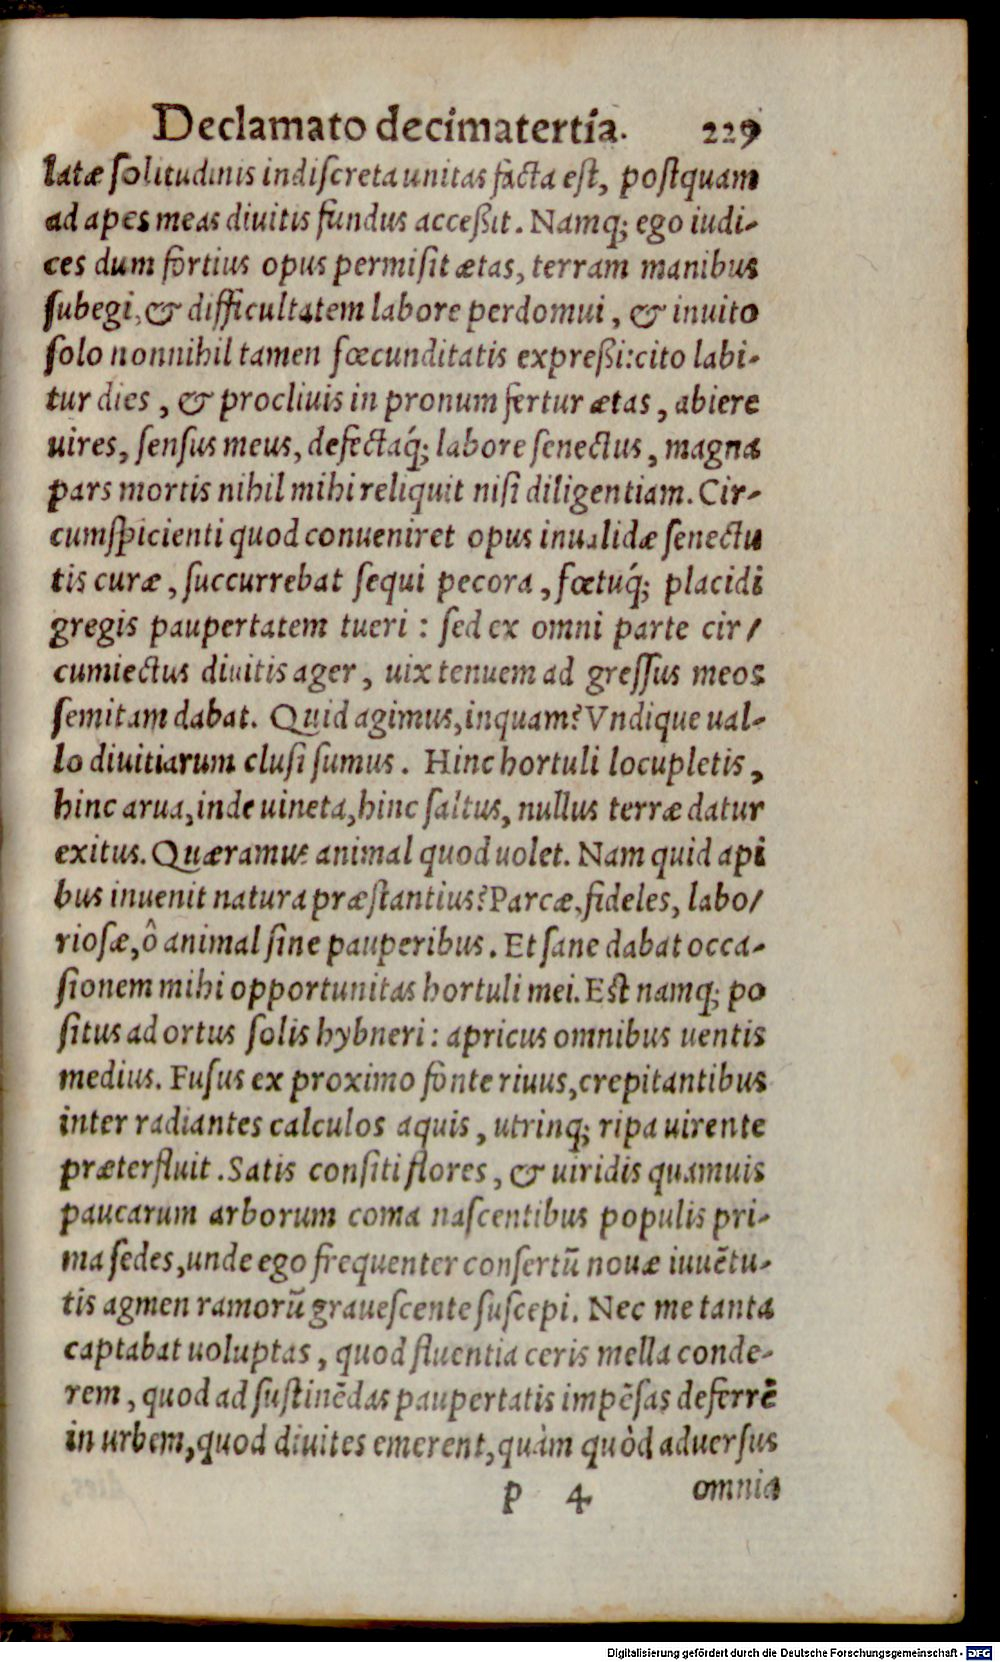 Declamato decimatertia. 229
latæ ſolitudinis indiſcreta unitas facta eſt, poſtquam
ad apes meas diuitis fundus acceßit. Namq; ego iudi-
ces dum fortius opus permiſit ætas, terram manibus
ſubegi, & difficultatem labore perdomui, & inuito
ſolo nonnihil tamen fœcunditatis expreßi: cito labi-
tur dies, & procliuis in pronum fertur ætas, abiere
uires, ſenſus meus, defectaq́; labore ſenectus, magna
pars mortis nihil mihi reliquit niſi diligentiam. Cir-
cumſpicienti quod conueniret opus inualidæ ſenectu
tis curæ, ſuccurrebat ſequi pecora, fœtuq́; placidi
gregis paupertatem tueri: ſed ex omni parte cir/
cumiectus diuitis ager, uix tenuem ad greſſus meos
ſemitam dabat. Quid agimus, inquam? Vndique ual-
lo diuitiarum cluſi ſumus. Hinc hortuli locupletis,
hinc arua, inde uineta, hinc ſaltus, nullus terræ datur
exitus. Quæramus animal quod uolet. Nam quid api
bus inuenit natura præſtantius? Parcæ, fideles, labo/
rioſæ, ô animal ſine pauperibus. Et ſane dabat occa-
ſionem mihi opportunitas hortuli mei. Eſt namq; po
ſitus ad ortus ſolis hybneri: apricus omnibus uentis
medius. Fuſus ex proximo fonte riuus, crepitantibus
inter radiantes calculos aquis, utrinq; ripa uirente
præterfluit. Satis conſiti flores, & uiridis quamuis
paucarum arborum coma naſcentibus populis pri-
ma ſedes, unde ego frequenter conſertũ nouæ iuuẽtu-
tis agmen ramorũ graueſcente ſuſcepi. Nec me tanta
captabat uoluptas, quod fluentia ceris mella conde-
rem, quod ad ſuſtinẽdas paupertatis impẽſas deferrẽ
in urbem, quod diuites emerent, quàm quòd aduerſus
P 4 omnia
Digitalisierung gefördert durch die Deutsche Forschungsgemeinschaft - DFG